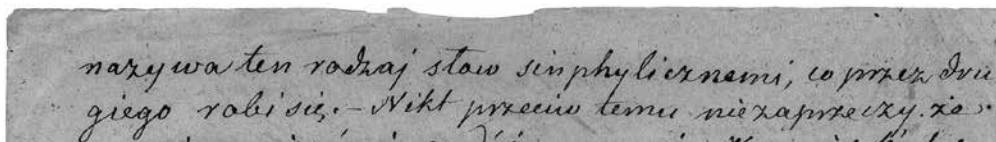 nazywa ten rodzaj słow sinphylicznemi, co przez dru
giego robi się. – Nikt przeciw temu niezaprzeczy. że